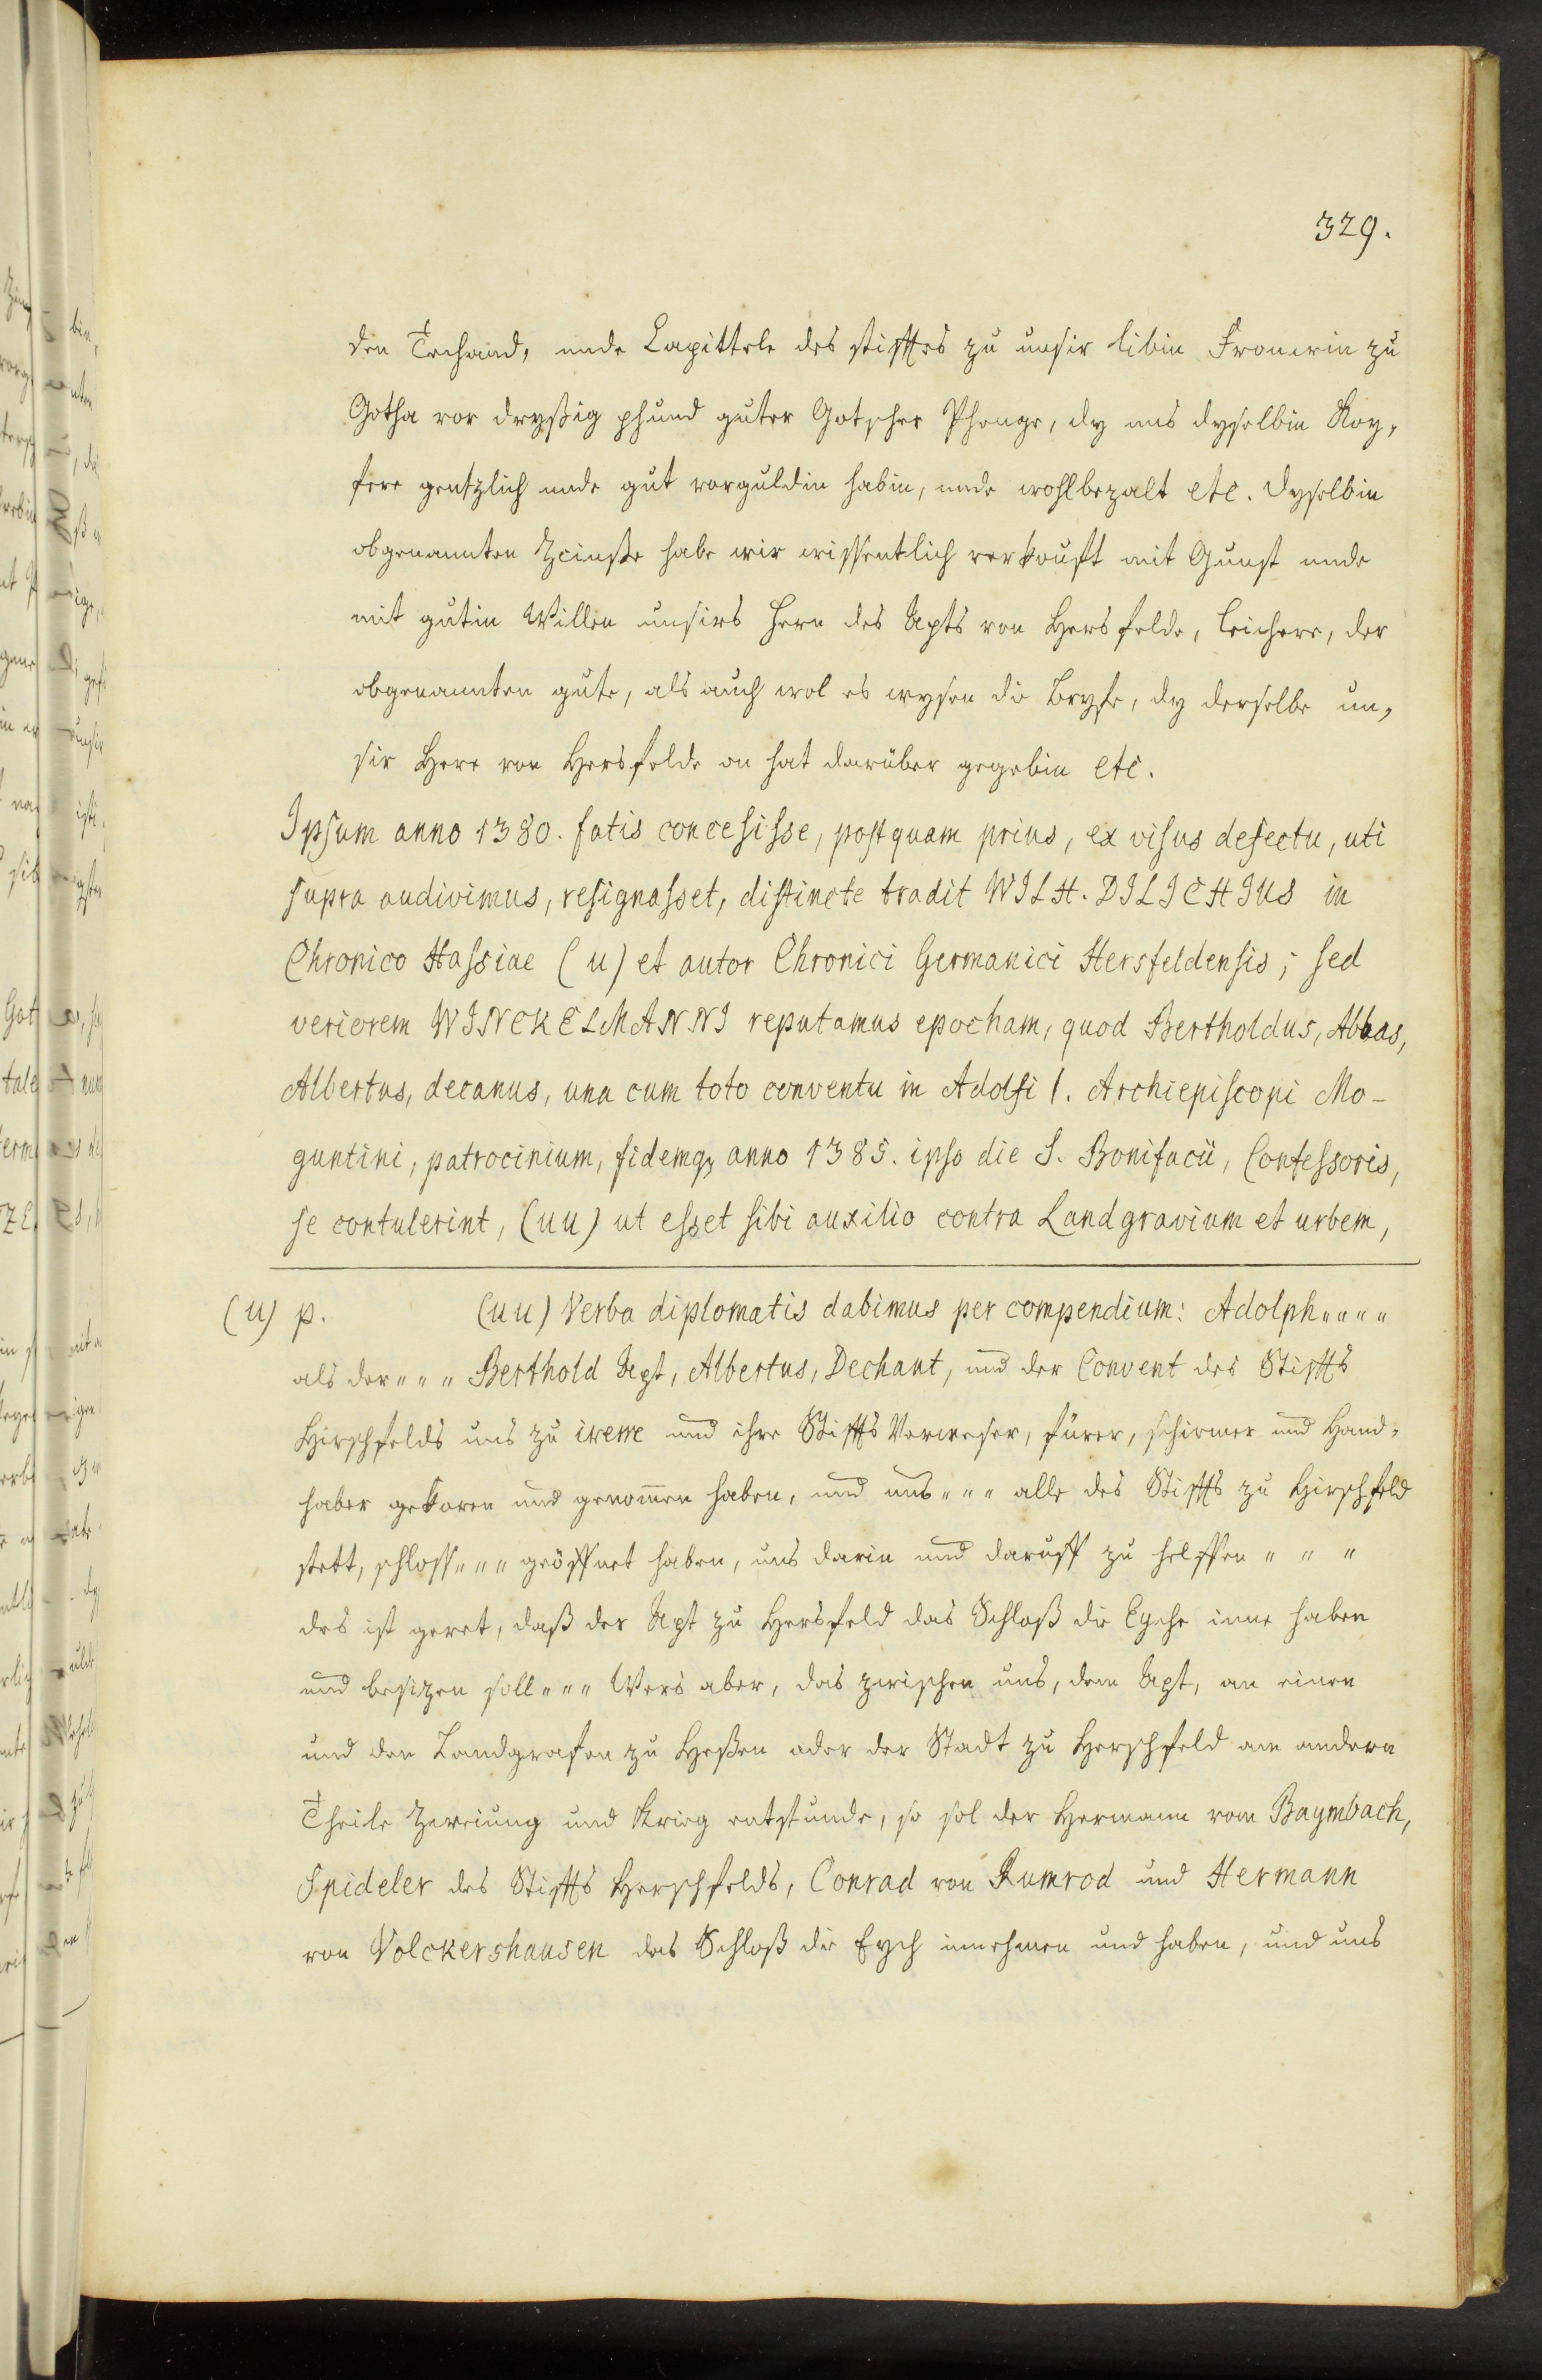 329.
den Techand, unde Capittele des stifftes zu unsir libin Frouwin zu
Gotha vor dryßig phund guter Gotscher Phenge, dy uns dyselbin Koy-
fere gentzlich unde gut vorguldin habin, unde wohlbezalt etc. Dyselbin
obgenannten Zcinße habe wir wissentlich verkouft mit Gunst unde
mit gutin Willen unsirs Hern des Apts von Hersfelde, leichere, der
obgenannten gute, als auch wol es wysen die Bryfe, dy derselbe un-
sir Here von Hersfelde on hat darüber gegebin etc.
Ipsum anno 1380. fatis concesisse, postquam prius, ex visus defectu, uti
supra audivimus, resignasset, distincte tradit WILH. DILICHIUS in
Chronico Hassiae (u) et autor Chronici Germanici Hersfeldensis; sed
veriorem WINCKELMANNI reputamus epocham, quod Bertholdus, Abbas,
Albertus, decanus, una cum toto conventu in Adolfi I. Archiepiscopi Mo-
guntini, patrocinium, fidemq, anno 1385. ipso die S. Bonifacii, Confessoris,
se contulerint, (uu) ut esset sibi auxilio contra Landgravium et urbem,
(u) p. (uu) Verba diplomatis dabimus per compendium: Adolph " " " "
als der " " " Berthold Apt, Albertus, Dechant, und der Convent des Stiffts
Hirschfelds uns zu irem und ihre Stiffts Verweser, fürer, schirmer und Hand-
haber gekoren und genom̄en haben, und uns " " " alle des Stiffts zu Hirschfeld
stett, schloss " " " geöffnet haben, uns darin und daruff zu helffen " " "
des ist geret, daß der Apt zu Hersfeld das Schloß die Eyche inne haben
und besizen soll " " " Wers aber, das zwischen uns, dem Apt, an einen
und den Landgrafen zu Heßen oder der Stadt zu Herschfeld am andern
Theile Zweiung und Krieg entstunde, so sol der Hermann vom Baymbach,
Spideler des Stiffts Herschfelds, Conrad von Rumrod und Hermann
von Volckershausen das Schloß die Eych innehmen und haben, und uns